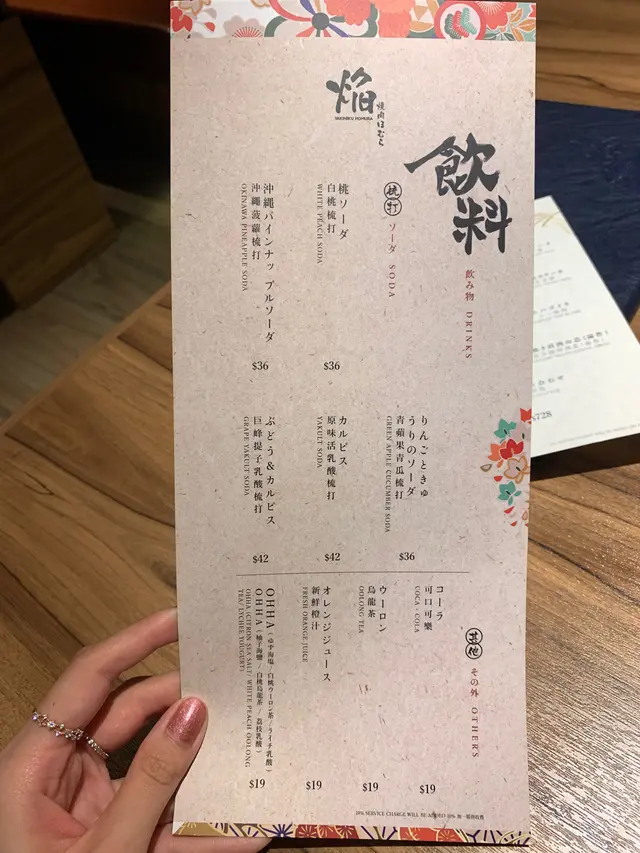 焰
焼肉ほむら
YAKINIKU HOMURA
飲料
飲み物 DRINKS
梳打 ソーダ SODA
桃ソーダ
白桃梳打
WHITE PEACH SODA
$36
沖縄パインナップルソーダ
沖繩菠蘿梳打
OKINAWA PINEAPPLE SODA
$36
りんごときゅ
うりのソーダ
青蘋果青瓜梳打
GREEN APPLE CUCUMBER SODA
$36
カルピス
原味活乳酸梳打
YAKULT SODA
$42
ぶどう&カルピス
巨峰提子乳酸梳打
GRAPE YAKULT SODA
$42
其他 その外 OTHERS
コーラ
可口可樂
COCA - COLA
$19
ウーロン
烏龍茶
OOLONG TEA
$19
オレンジジュース
新鮮橙汁
FRESH ORANGE JUICE
$19
OHHA(ゆず海塩/白桃ウーロン茶/ライチ乳酸)
OHHA(柚子海鹽/白桃烏龍茶/荔枝乳酸)
OHHA (CITRON SEA SALT/ WHITE PEACH OOLONG
TEA/ LYCHEE YOUGURT)
$19
10% SERVICE CHARGE WILL BE ADDED 10% 加一服務收費
8728